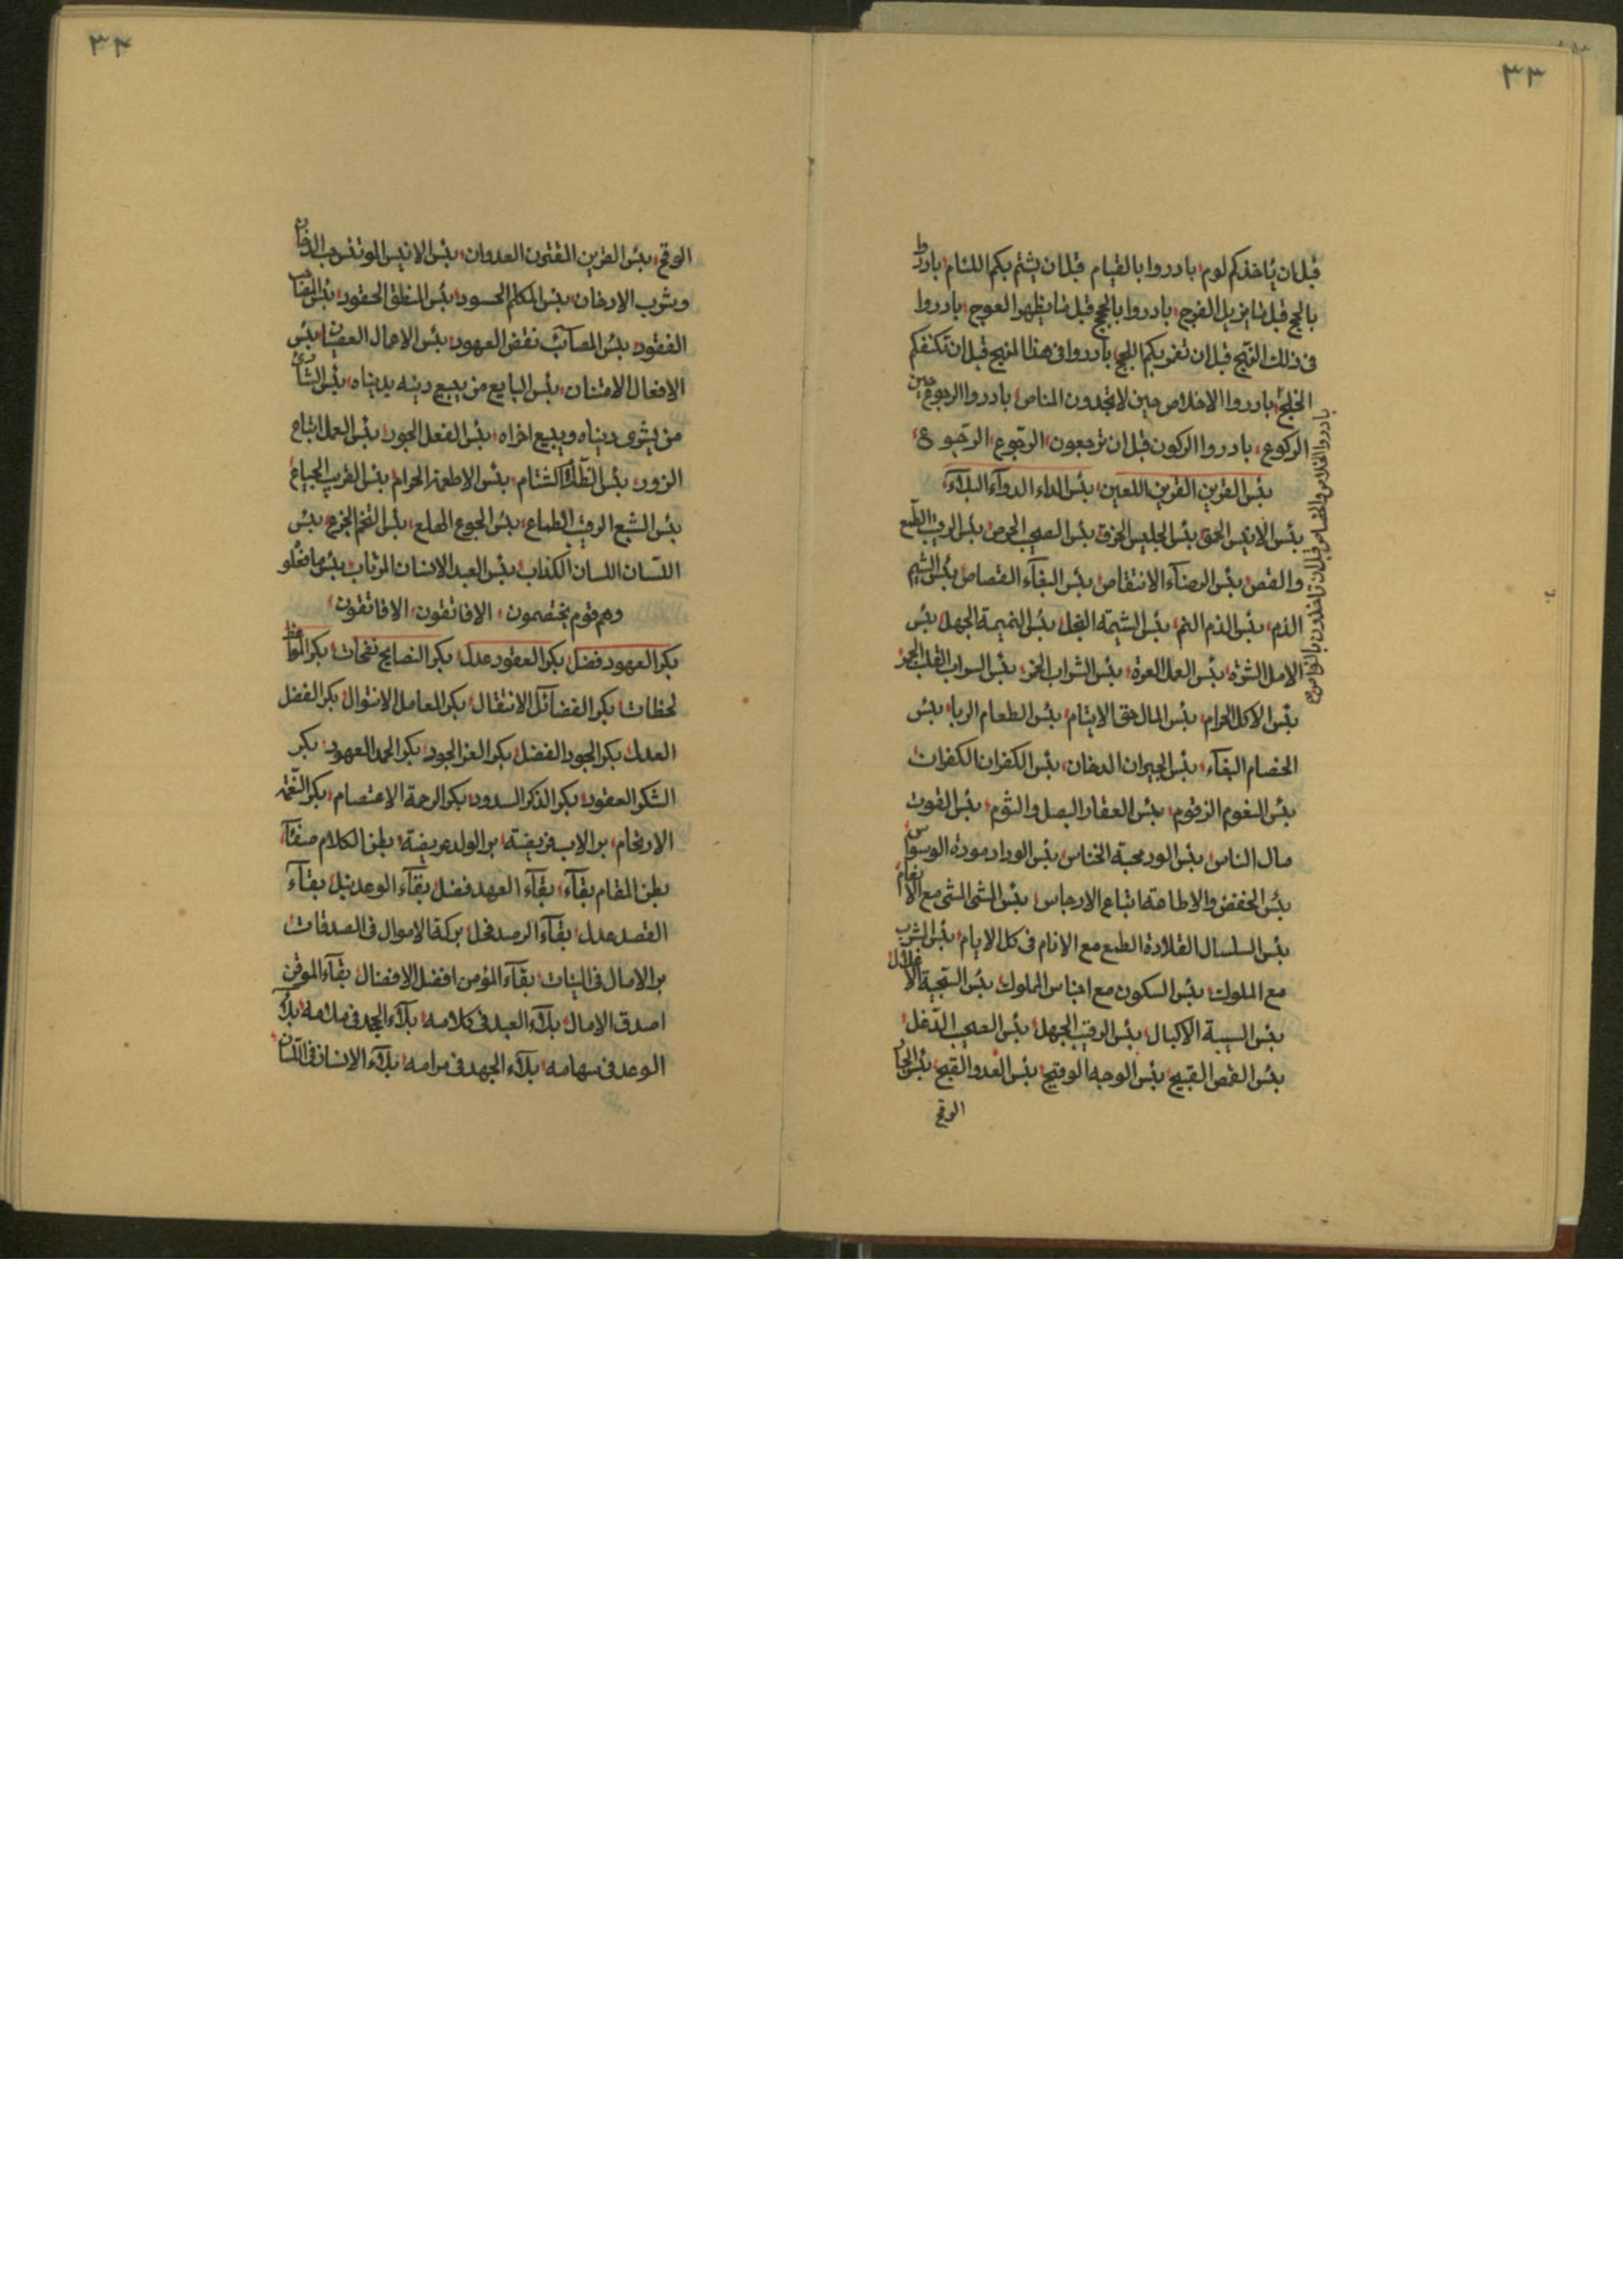 ٣٣
قبل ان يأخذكم لوم بادروا بالقيام قبل ان يشتم بكم اللئام بادروا
بالحج قبل ما يزيل الفرج بادروا بالحجج قبل ما يظهر العوج بادروا
فى ذلك النهج قبل ان تغريكم اللجج بادروا فى هذا المنهج قبل ان تكنفكم
الخلج بادروا الاخلاص حين لا تجدون المناص بادروا الرجوع حين
الركوع بادروا الركون قبل ان ترجعون الرجوع الرجوع
بادروا الخلاص والخصاص قبل ان تاخذون بالنواص
بئس القرين القرين اللعين بئس الداء الدوآء البلآء
بئس الانيس الحمق بئس الجليس الخرق بئس الصحب الحرص بئس الرقيب الطمع
والقص بئس الرضآء الانتقاص بئس البغآء القصاص بئس الشيم
الذم بئس الذم النم بئس الشيمة البخل بئس النميمة الجهل بئس
الامل الشره بئس العمل العرة بئس الشراب الخمر بئس السراب القلب
بئس الاكل الحرام بئس المال حق الايتام بئس الطعام الربا بئس
الخصام البغآء بئس الجيران الدخان بئس الكفران الكفران
بئس الغوم الزقوم بئس العقار البصل والثوم بئس القوت
مال الناس بئس الورد محبة الخناس بئس الوراد مودة الوسواس
بئس الخفض والاطاعة اتباع الارجاس بئس الشى المشى مع الانعام
بئس السلسال القلادة الطمع مع الانام فى كل الايام بئس الشرب
مع الملوك بئس السكون مع اجناس المملوك بئس السجية الاغلال
بئس السيبة الاكبال بئس الرقيب الجهل بئس الصحب الدغل
بئس القرص القبيح بئس الوجه الوقيح بئس الغدو القبح بئس
الوقح
٣٤
الوقح بئس القرين المفتون العدوان بئس الانيس الموتنس حب الدخان
وشرب الادخان بئس المكالم الحسود بئس المنطق الحقود بئس المصاب
الفقود بئس المصآئب نقض العهود بئس الاعمال العصيان بئس
الافعال الامتنان بئس البايع من يبيع دينه بدنياه بئس الشارى
من يشرى دنياه ويبيع اخراه بئس الفعل الجور بئس العمل اتباع
الزور بئس الشتام بئس الاطعمة الحرام بئس القرب الجياع
بئس الشبع الرقيب الطماع بئس الجوع الهلع بئس الفخم الجزع بئس
اللسان اللسان الكذاب بئس العبد الانسان المرتاب بئس ما فعلوا
وهم قوم يختصمون الا فاتقون الا فاتقون
بكر العهود فضل بكر العقود عدل بكر النصايح نفحات بكر المواعظ
لحظات بكر الفضآئل الانتقال بكر المعامل الانتوال بكر الفضل
العدل بكر الجود الفضل بكر العز الجود بكر الحمد العهود بكر
الشكر العقود بكر الذكر السدود بكر الرحمة الاعتصام بكر النعمة
الارتحام بر الاب فريضة بر الولد عريضة بطن الكلام صفآء
بطن المقام بقآء بقآء العهد فضل بقآء الوعد نيل بقآء
القصد عدل بقآء الرصد فحل بركة الاموال فى الصدقات
بر الامال فى النيات بقآء المؤمن افضل الافضال بقآء الموقن
اصدق الامال بلآء العبد فى كلامه بلآء المجد فى ملامه بلآء
الوعد فى سهامه بلآء الجهد فى مرامه بلآء الانسان فى اللسان